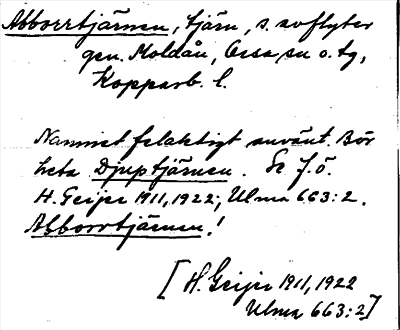 Abborrtjärnen, tjärn, s. avflyter
gen. Moldån, Orsa sn o. tg,
Kopparb. l.
Namnet felaktigt använt. Bör
heta Djuptjärnen. Se J.Ö.
H. Geijer 1911, 1922, Ulma 663:2.
Abborrtjärnen!
[H. Geijer 1911, 1922
Ulma 663:2]